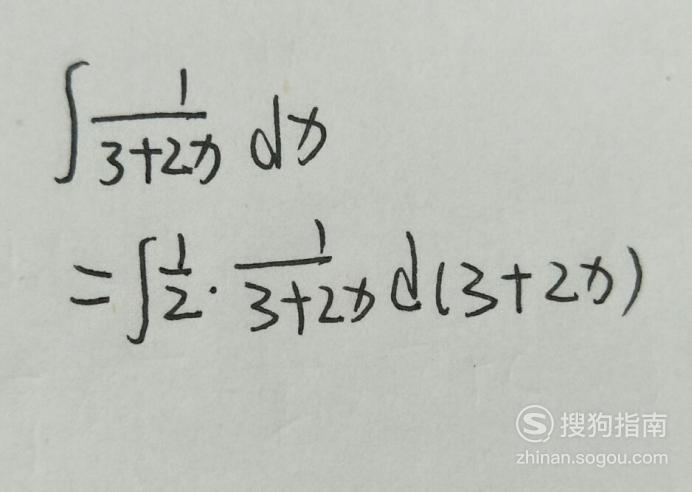 ∫ 1/(3+2x) dx
= ∫ 1/2 · 1/(3+2x) d(3+2x)
S 搜狗指南
zhinan.sogou.com